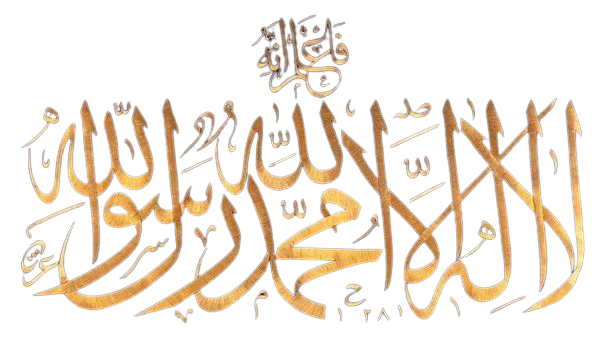 فاعلم انه
لا اله الا الله محمد رسول الله
١٢٨١